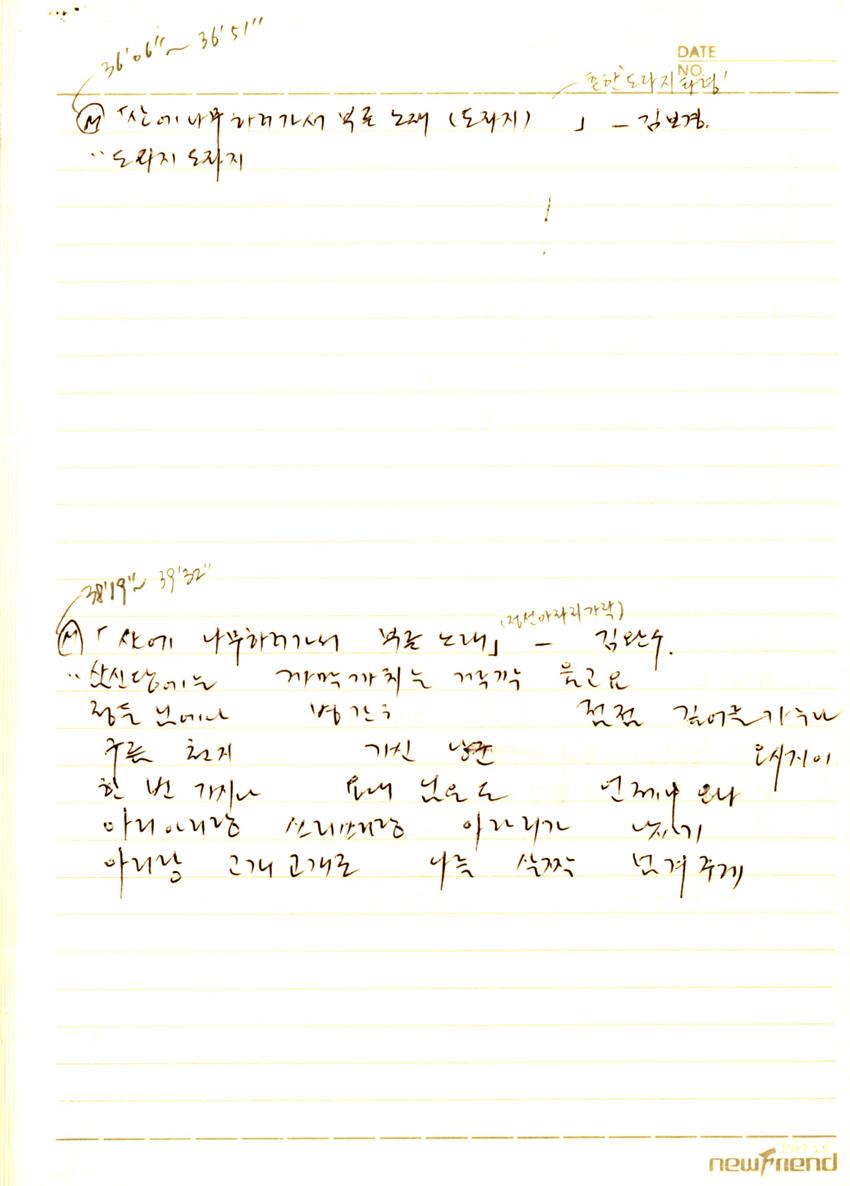 36'06"~ 36'51"
DATE
NO
흔한 '도라지 타령'
M 「산에 나무하러가서 부른 노래 (도라지) 」 - 김보경.
" 도라지 도라지
38'19"~ 39'32"
(정선아라리가락)
M 「산에 나무하러가서 부른 노래」 - 김완수.
" 산신당에는 까막까치는 깍깍 울고요
정든 님에나 병간 점점 깊어를 가누나
구름 천지 가신 낭군 오시지이
한 번 가시나 요내 님으도 언제나 오나
아리아리랑 쓰리쓰리랑 아라리가 났기
아리랑 고개 고개로 나를 살짝 넘겨 주게
newfriend